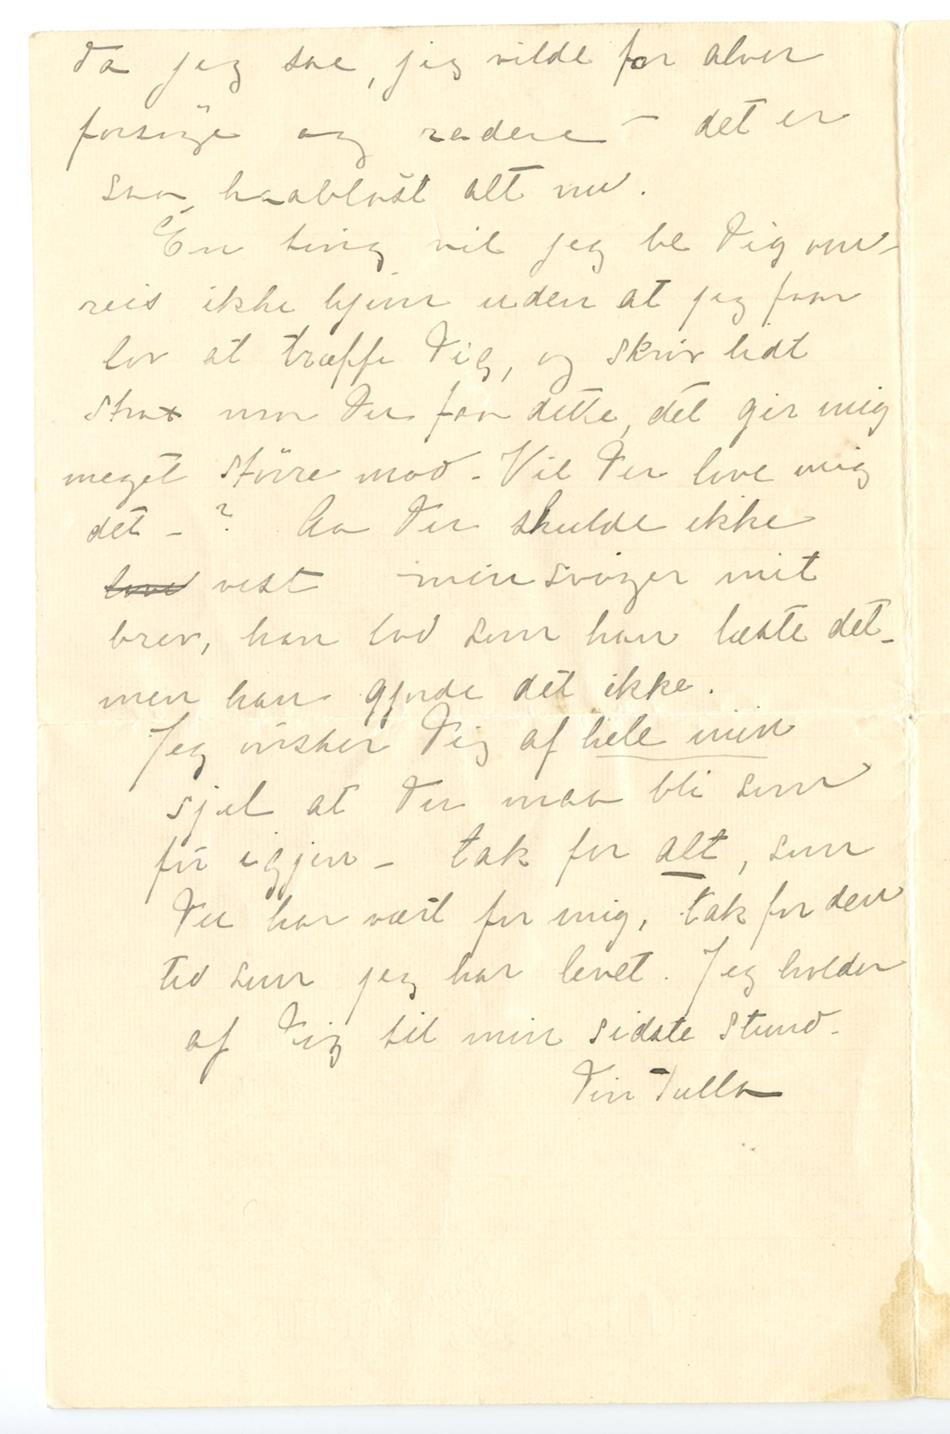 Da jeg saa, jeg vilde for alvor
forsöge og radere – det er
saa haablöst alt nu.
En ting vil jeg be Dig om –
reis ikke hjem uden at jeg faar
lov at træffe Dig, og skriv lidt
strax naar Du faar dette, det gir mig
meget större mod – Vil Du love mig
det – ? Aa Du skulde ikke
love vist min svoger mit
brev, han lod som han læste det –
men han gjorde det ikke.
Jeg önsker Dig af hele min
sjæl at Du maa bli som
för igjen – tak for alt, som
Du har vært for mig, tak for den
tid som jeg har levet. Jeg holder
af Dig til min sidste stund –
Din Tulla